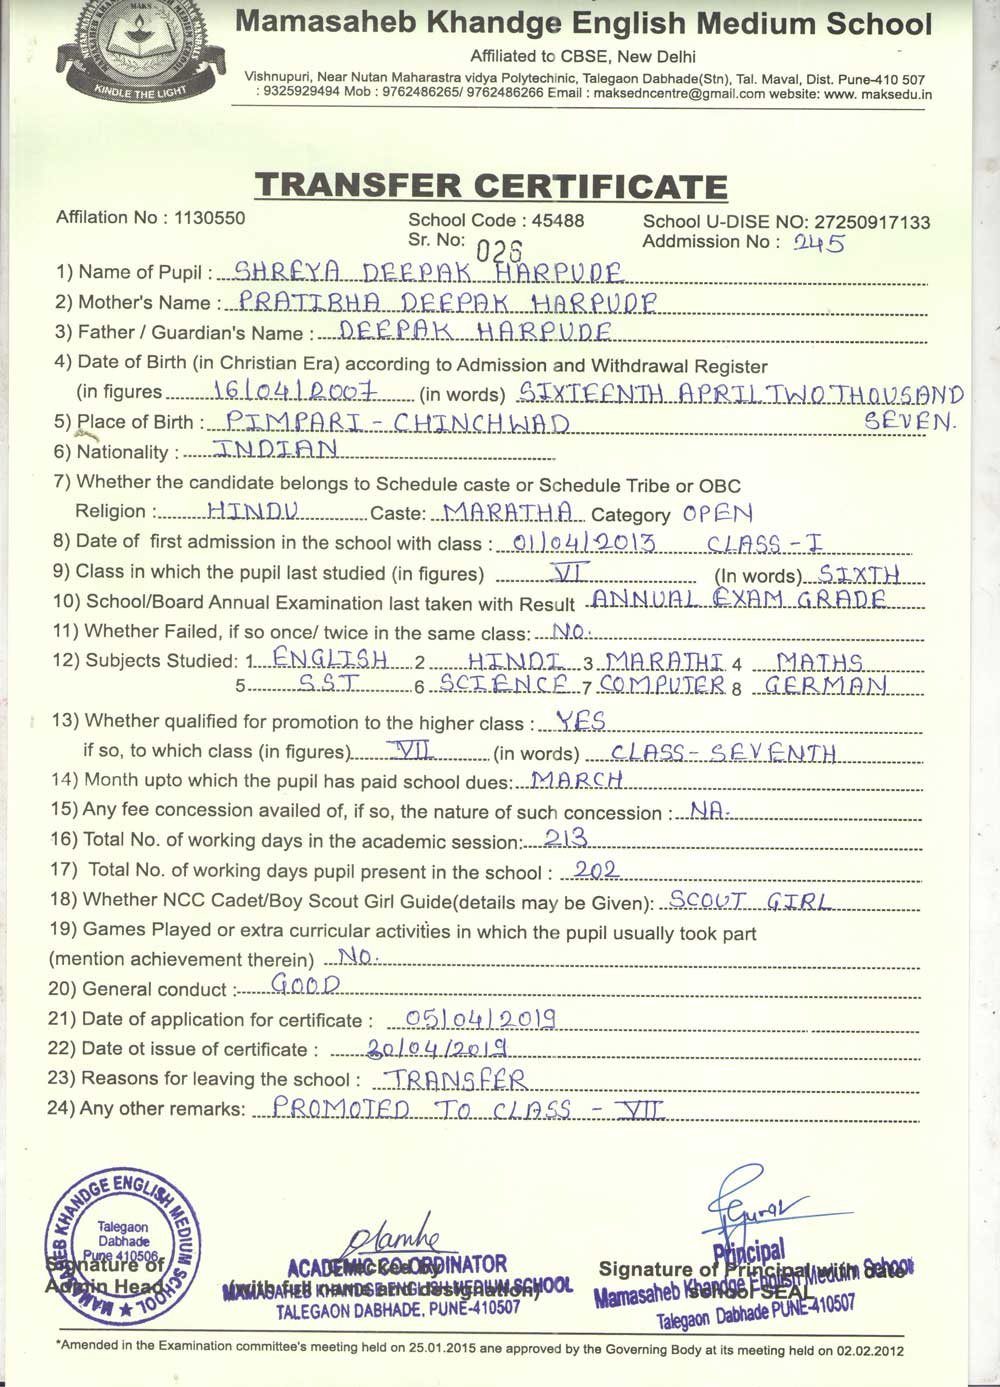 MAKS
KINDLE THE LIGHT
Mamasaheb Khandge English Medium School
Affiliated to CBSE, New Delhi
Vishnupuri, Near Nutan Maharastra vidya Polytechinic, Talegaon Dabhade(Stn), Tal. Maval, Dist. Pune-410 507
: 9325929494 Mob : 9762486265/ 9762486266 Email : maksedncentre@gmail.com website: www. maksedu.in
TRANSFER CERTIFICATE
Affilation No : 1130550 School Code : 45488 School U-DISE NO: 27250917133
Sr. No: 026 Addmission No : 245
1) Name of Pupil : SHREYA DEEPAK HARPUDE
2) Mother's Name : PRATIBHA DEEPAK HARPUDE
3) Father / Guardian's Name : DEEPAK HARPUDE
4) Date of Birth (in Christian Era) according to Admission and Withdrawal Register
(in figures 16/04/2007 (in words) SIXTEENTH APRIL TWO THOUSAND
5) Place of Birth : PIMPARI - CHINCHWAD SEVEN.
6) Nationality : INDIAN
7) Whether the candidate belongs to Schedule caste or Schedule Tribe or OBC
Religion : HINDU Caste: MARATHA Category OPEN
8) Date of first admission in the school with class : 01/04/2013 CLASS - I
9) Class in which the pupil last studied (in figures) VI (In words) SIXTH
10) School/Board Annual Examination last taken with Result ANNUAL EXAM GRADE
11) Whether Failed, if so once/ twice in the same class: NO.
12) Subjects Studied: 1 ENGLISH 2 HINDI 3 MARATHI 4 MATHS
5 S.S.T 6 SCIENCE 7 COMPUTER 8 GERMAN
13) Whether qualified for promotion to the higher class : YES
if so, to which class (in figures) VII (in words) CLASS - SEVENTH
14) Month upto which the pupil has paid school dues: MARCH
15) Any fee concession availed of, if so, the nature of such concession : NA.
16) Total No. of working days in the academic session: 213
17) Total No. of working days pupil present in the school : 202
18) Whether NCC Cadet/Boy Scout Girl Guide(details may be Given): SCOUT GIRL
19) Games Played or extra curricular activities in which the pupil usually took part
(mention achievement therein) NO.
20) General conduct : GOOD
21) Date of application for certificate : 05/04/2019
22) Date ot issue of certificate : 20/04/2019
23) Reasons for leaving the school : TRANSFER
24) Any other remarks: PROMOTED TO CLASS - VII
MAMASAHEB KHANDGE ENGLISH MEDIUM SCHOOL
Talegaon
Dabhade
Pune 410506
Signature of
Admin Head
ACADEMIC CO-ORDINATOR
MAMASAHEB KHANDGE ENGLISH MEDIUM SCHOOL
TALEGAON DABHADE, PUNE-410507
Principal
Signature of Principal with date
Mamasaheb Khandge English Medium School
school SEAL
Talegaon Dabhade PUNE-410507
*Amended in the Examination committee's meeting held on 25.01.2015 ane approved by the Governing Body at its meeting held on 02.02.2012